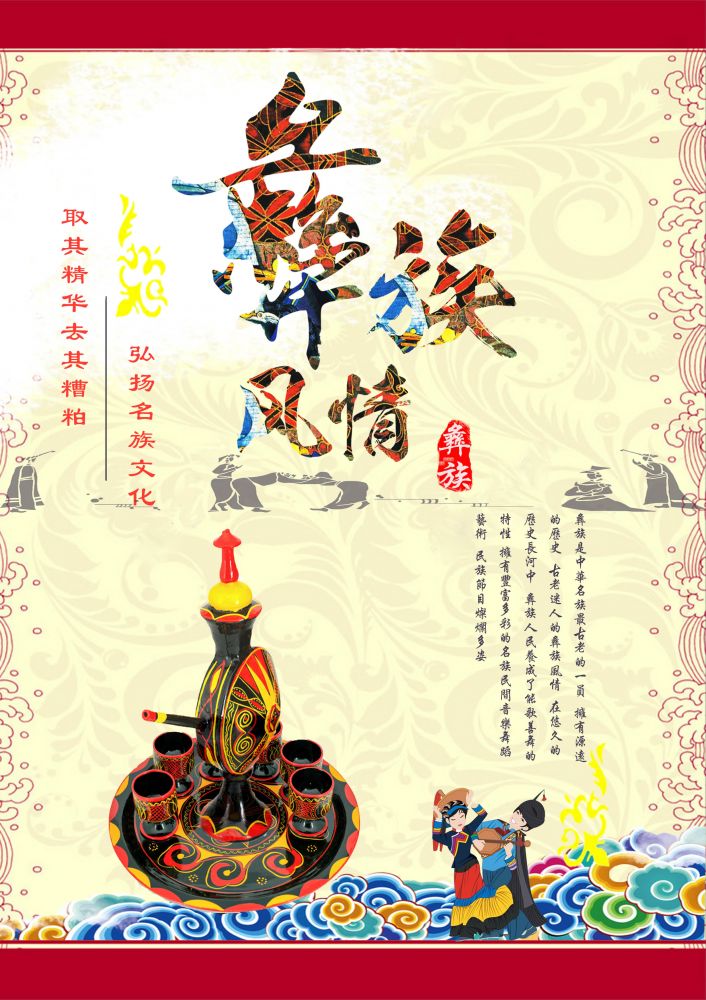 彝族
风情
彝族
取其精华去其糟粕
弘扬名族文化
彝族是中華名族最古老的一員 擁有源遠
的歷史 古老迷人的彝族風情 在悠久的
歷史長河中 彝族人民養成了能歌善舞的
特性 擁有豐富多彩的名族民間音樂舞蹈
藝術 民族節目燦爛多姿